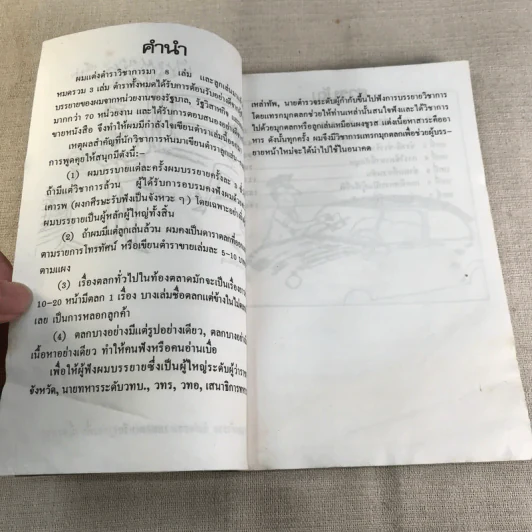 คำนำ
ผมแต่งตำราวิชาการมา ๘ เล่ม และลูกเล่น
หมดรวม 3 เล่ม ตำราทั้งหมดได้รับการต้อนรับอย่างดี
บรรยายของผมจากหน่วยงานของรัฐบาล, รัฐวิสาหกิจ
มากกว่า 70 หน่วยงาน และได้รับการตอบสนองอย่าง
ขายหนังสือ จึงทำให้ผมมีกำลังใจเขียนตำราเล่มนี้
เหตุผลสำคัญที่นักวิชาการหันมาเขียนตำราลูกเล่น
การพูดคุยให้สนุกมีดังนี้:-
(1) ผมบรรยายแต่ละครั้งผมบรรยายครั้งละ 3
ถ้ามีแต่วิชาการล้วน ผู้ได้รับการอบรมคงฟังผมด้วย
เคารพ (ผงกศีรษะรับฟังเป็นจังหวะ ๆ) โดยเฉพาะอย่างยิ่ง
ผมบรรยายเป็นผู้หลักผู้ใหญ่ทั้งสิ้น
(2) ถ้าผมมีแต่ลูกเล่นล้วน ผมคงเป็นดาราตลก
ตามรายการโทรทัศน์ หรือเขียนตำราขายเล่มละ 5-10
ตามแผง
(3) เรื่องตลกทั่วไปในท้องตลาดมักจะเป็นเรื่อง
10-20 หน้ามีตลก 1 เรื่อง บางเล่มชื่อตลกแต่ข้างใน
เลย เป็นการหลอกลูกค้า
(4) ตลกบางอย่างมีแต่รูปอย่างเดียว, ตลกบางอย่าง
เนื้อหาอย่างเดียว ทำให้คนฟังหรือคนอ่านเบื่อ
เพื่อให้ผู้ฟังผมบรรยายซึ่งเป็นผู้ใหญ่ระดับผู้ว่า
จังหวัด, นายทหารระดับวทบ., วทร, วทอ, เสนาธิการ
เหล่าทัพ, นายตำรวจระดับผู้กำกับขึ้นไปฟังการบรรยายวิชาการ
โดยแทรกมุกตลกจะช่วยให้ท่านเหล่านั้นสนใจฟังและได้วิชาการ
ไปด้วยมุกตลกหรือลูกเล่นเหมือนผงชูรส แต่งเนื้อหาสาระคืออา-
หาร ดังนั้นทุกครั้ง ผมจึงมีวิชาการแทรกมุกตลกเพื่อช่วยผู้บรร-
ยายหน้าใหม่จะได้นำไปใช้ในอนาคต